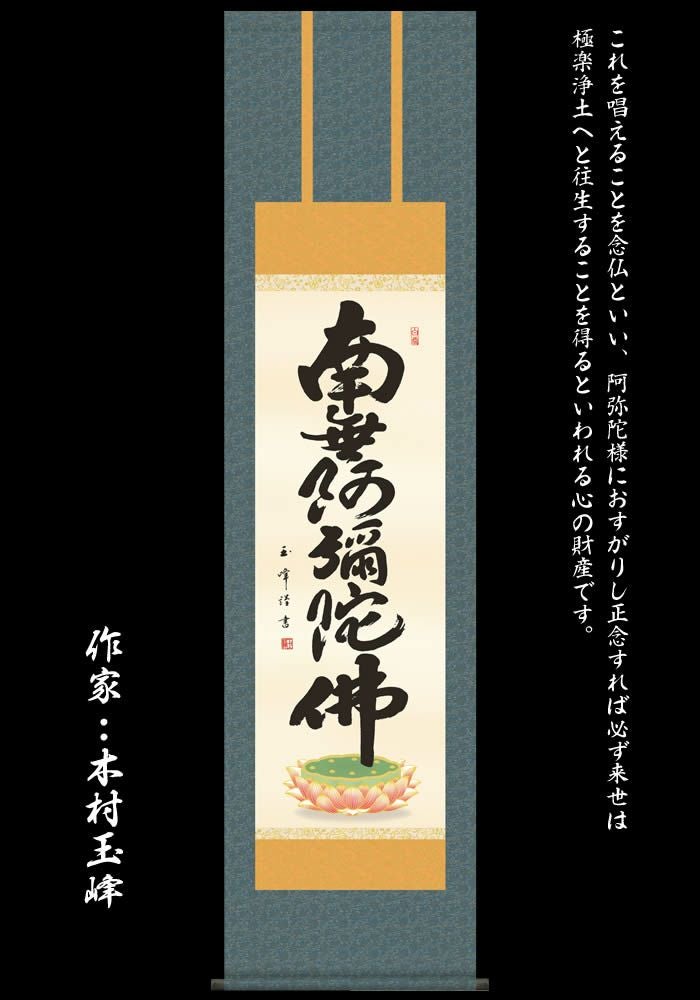 これを唱えることを念仏といい、阿弥陀様におすがりし正念すれば必ず来世は
極楽浄土へと往生することを得るといわれる心の財産です。
南無阿彌陀佛
玉峰謹書
作家：木村玉峰